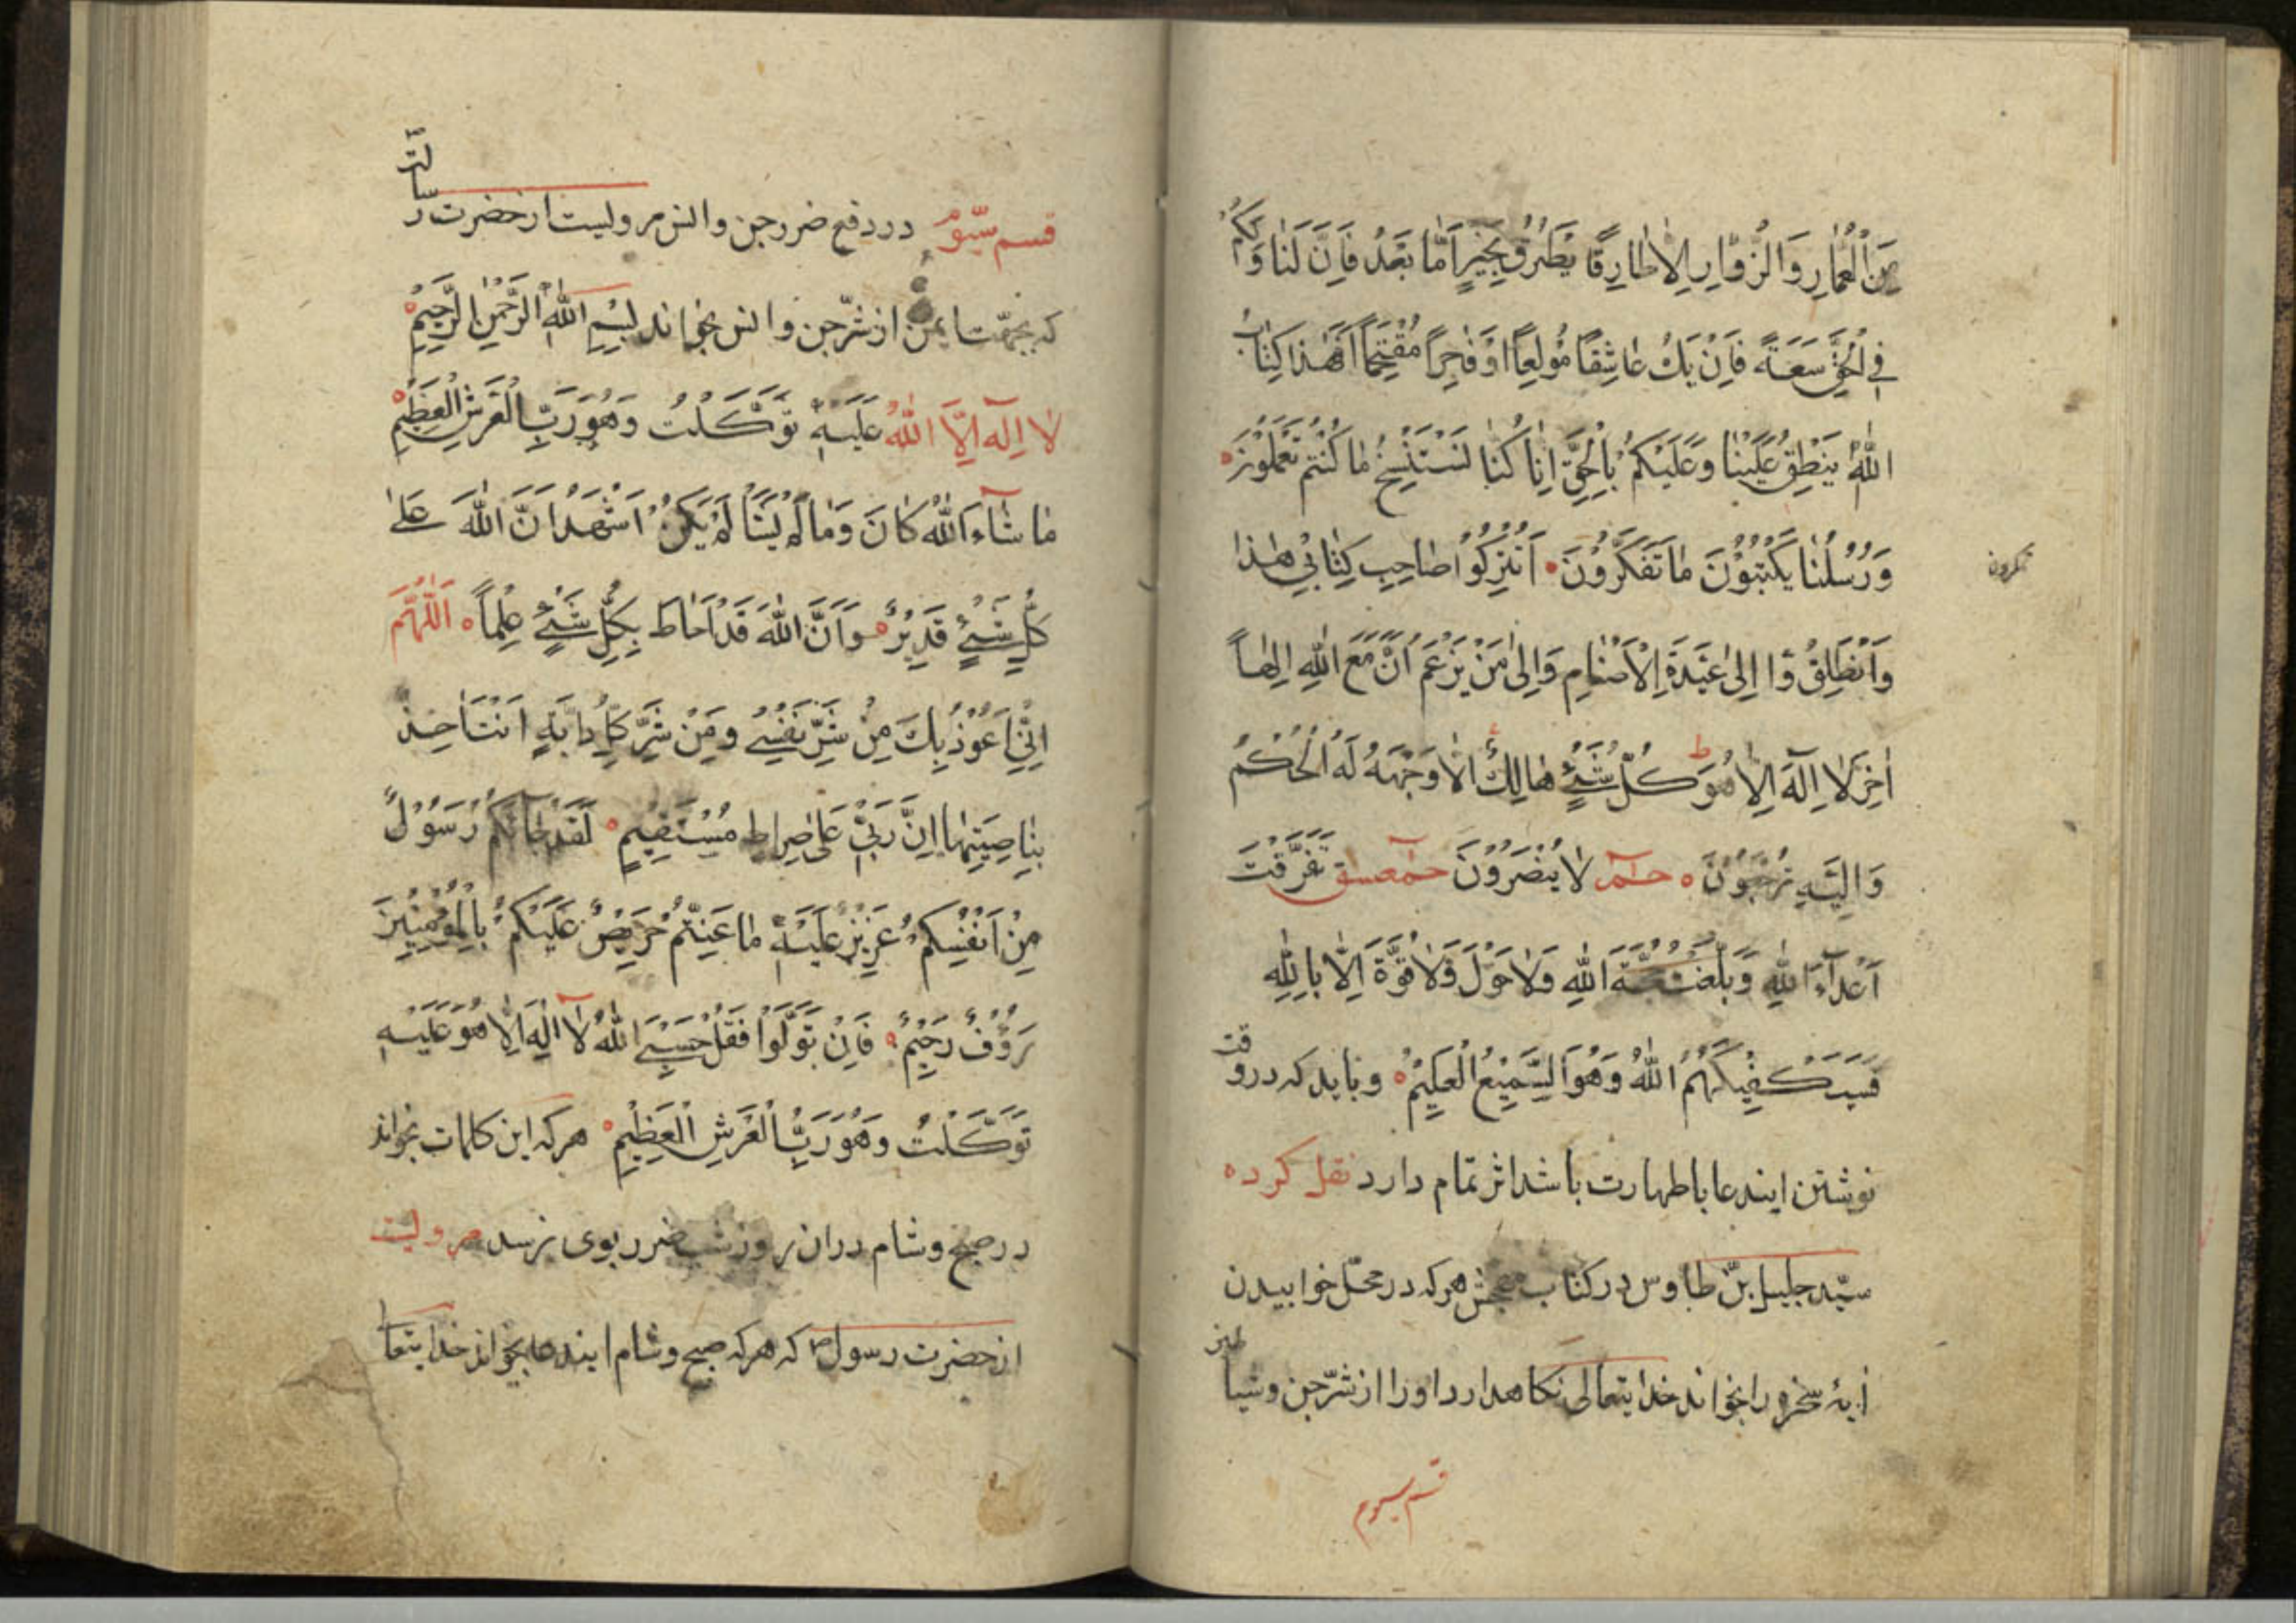 مِنَ الْعُمّٰارِ وَالزُّوّٰارِ اِلّٰا طٰارِقًا یَطْرُقُ بِخَیْرٍ اَمّٰا بَعْدُ فَاِنَّ لَنٰا وَلَكُمْ
فِی الْحَقِّ سَعَةً فَاِنْ یَكُ عٰاشِقًا مُولِعًا اَوْ فٰاجِرًا مُقْتَحِمًا فَهٰذا كِتٰابُ
اللّٰهِ یَنْطِقُ عَلَیْنٰا وَعَلَیْكُمْ بِالْحَقِّ اِنّٰا كُنّٰا نَسْتَنْسِخُ مٰا كُنْتُمْ تَعْمَلُونَ
وَرُسُلُنٰا یَكْتُبُوْنَ مٰا تَفَكَّرُوْنَ اُتْرُكُوْا صٰاحِبَ كِتٰابِی هٰذا
تمكرون
وَانْطَلِقُوْا اِلیٰ عَبَدَةِ الْاَصْنٰامِ وَاِلیٰ مَنْ یَزْعَمُ اَنَّ مَعَ اللّٰهِ اِلٰهًا
اٰخَرَ لٰا اِلٰهَ اِلّٰا هُوَ ط كُلُّ شَیْءٍ هٰالِكٌ اِلّٰا وَجْهَهُ لَهُ الْحُكْمُ
وَاِلَیْهِ تُرْجَعُوْنَ حٰمٓ لٰا یُنْصَرُوْنَ حٰمٓعٓسٓقٓ تَفَرَّقَتْ
اَعْدٰآءُ اللّٰهِ وَبَلَغَتْ حُجَّةُ اللّٰهِ وَلٰا حَوْلَ وَلٰا قُوَّةَ اِلّٰا بِاللّٰهِ
فَسَیَكْفِیْكَهُمُ اللّٰهُ وَهُوَ السَّمِیْعُ الْعَلِیْمُ وباید که در وقت
نوشتن ایندعا با طهارت باشد اثر تمام دارد نقل کرده
سیّد جلیل بن طاوس در کتاب هرکه در محلّ خوابیدن
آیهٔ سخره را بخواند خدایتعالی نکاهدارد او را از شرّ جن وشیاطین
قسم سیوم
قسم سیّوم در دفع ضرر جن وانس مرویست از حضرت رسالتؐ
که بجهت ایمن از شرّ جن وانس بخواند بِسْمِ اللّٰهِ الرَّحْمٰنِ الرَّحِیْمِ
لٰا اِلٰهَ اِلَّا اللّٰهُ عَلَیْهِ تَوَكَّلْتُ وَهُوَ رَبُّ الْعَرْشِ الْعَظِیْمِ
مٰا شٰآءَ اللّٰهُ كٰانَ وَمٰا لَمْ یَشَأْ لَمْ یَكُنْ اَشْهَدُ اَنَّ اللّٰهَ عَلیٰ
كُلِّ شَیْءٍ قَدِیْرٌ وَاَنَّ اللّٰهَ قَدْ اَحٰاطَ بِكُلِّ شَیْءٍ عِلْمًا اَللّٰهُمَّ
اِنِّی اَعُوْذُ بِكَ مِنْ شَرِّ نَفْسِی وَمِنْ شَرِّ كُلِّ دٰابَّةٍ اَنْتَ اٰخِذٌ
بِنٰاصِیَتِهٰا اِنَّ رَبِّی عَلیٰ صِرٰاطٍ مُسْتَقِیْمٍ لَقَدْ جٰائَكُمْ رَسُوْلٌ
مِنْ اَنْفُسِكُمْ عَزِیْزٌ عَلَیْهِ مٰا عَنِتُّمْ حَرِیْصٌ عَلَیْكُمْ بِالْمُؤْمِنِیْنَ
رَؤُفٌ رَحِیْمٌ فَاِنْ تَوَلَّوْا فَقُلْ حَسْبِیَ اللّٰهُ لٰا اِلٰهَ اِلّٰا هُوَ عَلَیْهِ
تَوَكَّلْتُ وَهُوَ رَبُّ الْعَرْشِ الْعَظِیْمِ هرکه این کلمات بخواند
در صبح وشام در ان روز شب ضرر بوی نرسد مرویست
از حضرت رسولؐ که هرکه صبح وشام ایندعا بخواند خدایتعا